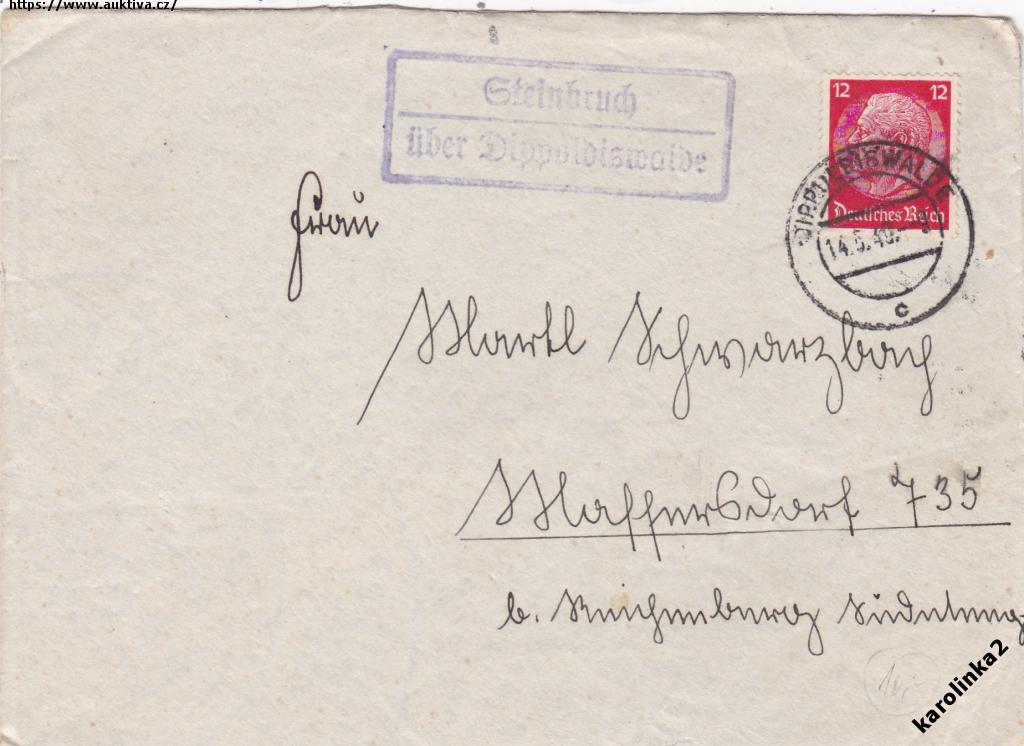 https://www.auktiva.cz/
Steinbruch
über Dippoldiswalde
12 12
Deutsches Reich
DIPPOLDISWALDE
14.6.40.-9
c
Frau
Martl Schwarzbach
Maffersdorf 735
b. Reichenberg Sudetengau
karolinka2